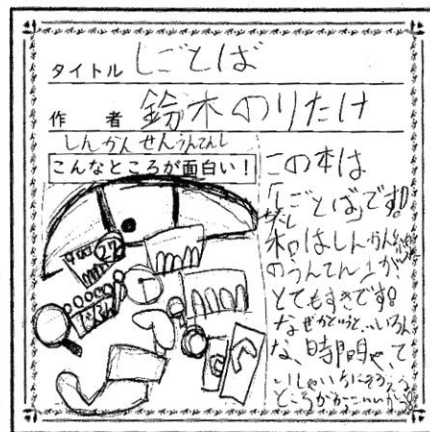 タイトル しごとば
作者 鈴木のりたけ
しんかんせんうんてんし
こんなところが面白い!
27
この本は
「しごとば」です!!
はしんかんせん
のうんてんしが
とてもすきです!!
なぜかというと…いろん
な、時間や、て
いしゃいちにそろえる
ところがかっこいいから